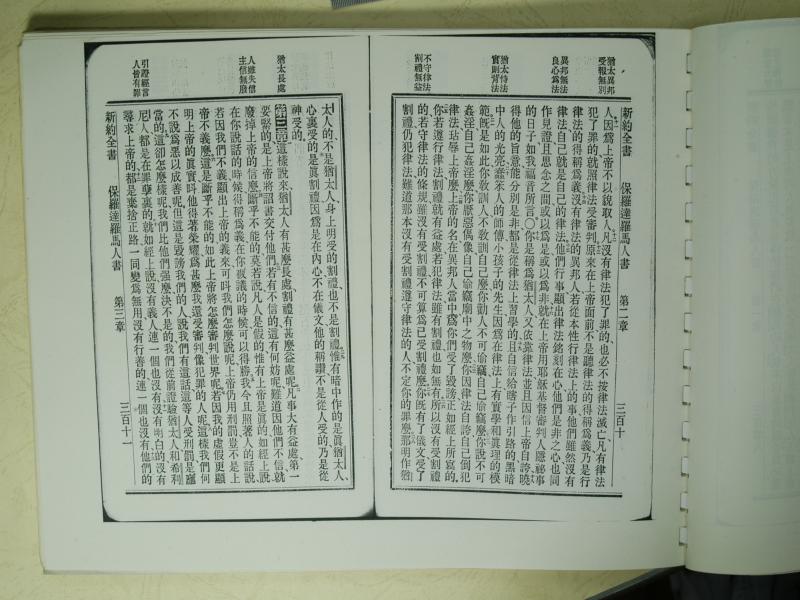 猶太異邦
受報無別
異邦無法
良心爲法
猶太恃法
實則背法
不守律法
割禮無益
新約全書 保羅達羅馬人書 第二章 三百十
人因爲上帝不以貌取人凡沒有律法犯了罪的也必不按律法滅亡凡有律法
犯了罪的就照律法受審判原來在上帝面前不是聽律法的得稱爲義乃是行
律法的得稱爲義沒有律法的異邦人若從本性行律法上的事他們雖然沒有
律法自己就是自己的律法他們行事顯出律法銘刻在心他們是非之心也同
作見證且思念之間或以爲是或以爲非就在上帝用耶穌基督審判人隱祕事
的日子如我福音所言〇你是稱爲猶太人又依靠律法並且因信上帝自誇曉
得他的旨意能分別是非都是從律法上習學的且自信給瞎子作引路的黑暗
中人的光亮蠢笨人的師傅小孩子的先生因爲在律法上有實學和眞理的模
範旣是如此你敎訓人不敎訓自己麼你勸人不可偷竊自己偷竊麼你說不可
姦淫自己姦淫麼你厭惡偶像自己偷竊廟中之物麼你因律法自誇自己倒犯
律法玷辱上帝麼上帝的名在異邦人當中爲你們受了毀謗正如經上所寫的
你若遵行律法割禮就有益處若犯律法雖有割禮也如無有所以沒有受割禮
的若守律法的條規雖沒有受割禮不可算爲已受割禮麼你旣有了儀文受了
割禮仍犯律法難道那本沒有受割禮遵守律法的人不定你的罪麼那明作猶
猶太長處
人雖失信
主信無廢
引證經言
人皆有罪
太人的不是猶太人身上明受的割禮也不是割禮惟有暗中作的是眞猶太人
心裏受的是眞割禮因爲是在內心不在儀文他的稱讚不是從人受的乃是從
神受的
第三章 這樣說來猶太人有甚麼長處割禮有甚麼益處呢凡事大有益處第一
要緊的是上帝將詔書交付他們若有不信的這有何妨呢難道因他們不信就
廢掉上帝的信麼斷乎不能的莫若說凡人是假的惟有上帝是眞的如經上說
在你說話的時候得稱爲義在你被議的時候可以得勝我今且照著人的話說
若因我們不義顯出上帝的義來可叫我們怎麼說呢上帝仍用刑罰豈不是上
帝不義麼這是斷乎不能的如此上帝將怎麼審判世界呢若因我的虛假更顯
明上帝的眞實叫他得著榮耀爲甚麼我還受審判像犯罪的人呢這樣我們何
不說爲惡以成善呢但這是毀謗我們的人說我們有這話這等人受刑罰是應
當的這卻怎麼樣呢我們比他們强麼決不是的我們從前證驗猶太人和希利
尼人都是在罪孽裏的就如經上說沒有義人連一個也沒有沒有明白的沒有
尋求上帝的都是棄捨正路一同變爲無用沒有行善的連一個也沒有他們的
新約全書 保羅達羅馬人書 第三章 三百十一